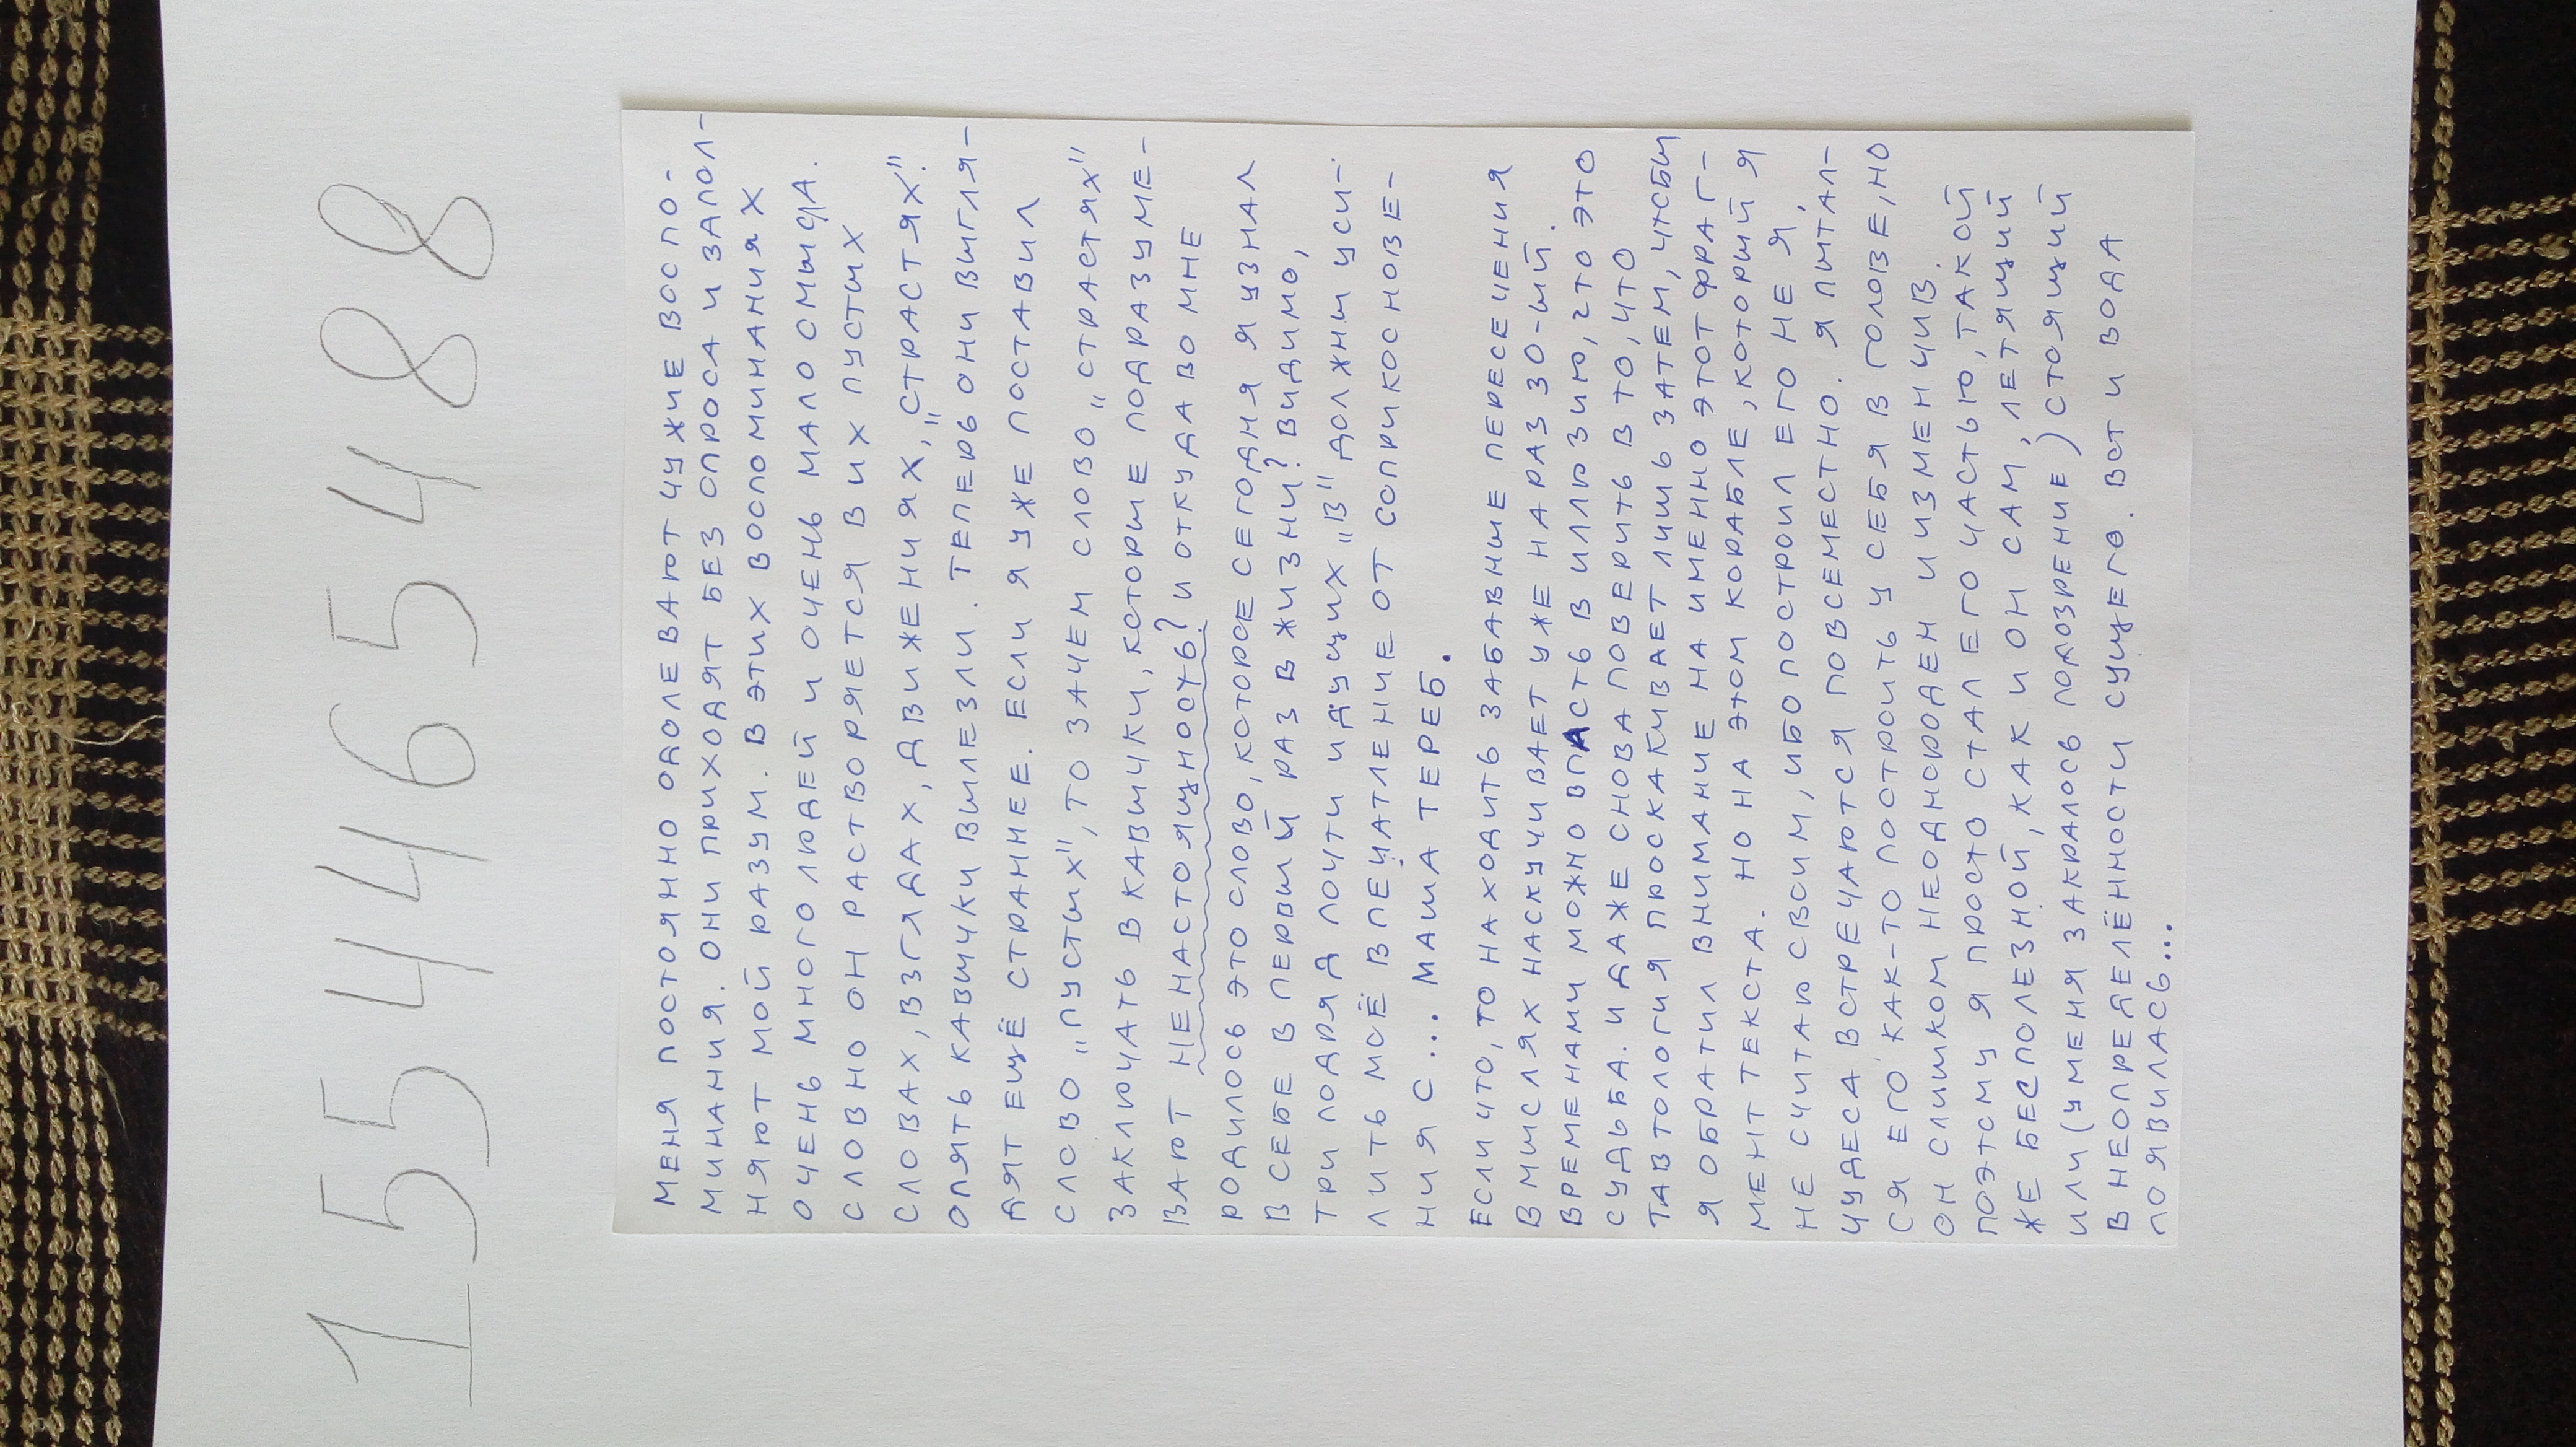 1554465488
МЕНЯ ПОСТОЯННО ОДОЛЕВАЮТ ЧУЖИЕ ВОСПО-
МИНАНИЯ. ОНИ ПРИХОДЯТ БЕЗ СПРОСА И ЗАПОЛ-
НЯЮТ МОЙ РАЗУМ. В ЭТИХ ВОСПОМИНАНИЯХ
ОЧЕНЬ МНОГО ЛЮДЕЙ И ОЧЕНЬ МАЛО СМЫСЛА.
СЛОВНО ОН РАСТВОРЯЕТСЯ В ИХ ПУСТЫХ
СЛОВАХ, ВЗГЯДАХ, ДВИЖЕНИЯХ, „СТРАСТЯХ".
ОПЯТЬ КАВЫЧКИ ВЫЛЕЗЛИ. ТЕПЕРЬ ОНИ ВЫГЛЯ-
ДЯТ ЕЩЁ СТРАННЕЕ. ЕСЛИ Я УЖЕ ПОСТАВИЛ
СЛОВО „ПУСТЫХ", ТО ЗАЧЕМ СЛОВО „СТРАСТЯХ"
ЗАКЛЮЧАТЬ В КАВЫЧКИ, КОТОРЫЕ ПОДРАЗУМЕ-
ВАЮТ НЕНАСТОЯЩНОСТЬ? И ОТКУДА ВО МНЕ
РОДИЛОСЬ ЭТО СЛОВО, КОТОРОЕ СЕГОДНЯ Я УЗНАЛ
В СЕБЕ В ПЕРВЫЙ РАЗ В ЖИЗНИ? ВИДИМО,
ТРИ ПОДРЯД ПОЧТИ ИДУЩИХ „В" ДОЛЖНЫ УСИ-
ЛИТЬ МОЁ ВПЕЧАТЛЕНИЕ ОТ СОПРИКОСНОВЕ-
НИЯ С... МАША ТЕРЕБ.
ЕСЛИ ЧТО, ТО НАХОДИТЬ ЗАБАВНЫЕ ПЕРЕСЕЧЕНИЯ
В МЫСЛЯХ НАСКУЧИВАЕТ УЖЕ НА РАЗ 30-ЫЙ.
ВРЕМЕНАМИ МОЖНО ВПАСТЬ В ИЛЛЮЗИЮ, ЧТО ЭТО
СУДЬБА. И ДАЖЕ СНОВА ПОВЕРИТЬ В ТО, ЧТО
ТАВТОЛОГИЯ ПРОСКАКИВАЕТ ЛИШЬ ЗАТЕМ, ЧТОБЫ
Я ОБРАТИЛ ВНИМАНИЕ НА ИМЕННО ЭТОТ ФРАГ-
МЕНТ ТЕКСТА. НО НА ЭТОМ КОРАБЛЕ, КОТОРЫЙ Я
НЕ СЧИТАЮ СВОИМ, ИБО ПОСТРОИЛ ЕГО НЕ Я,
ЧУДЕСА ВСТРЕЧАЮТСЯ ПОВСЕМЕСТНО. Я ПЫТАЛ-
СЯ ЕГО КАК-ТО ПОСТРОИТЬ У СЕБЯ В ГОЛОВЕ, НО
ОН СЛИШКОМ НЕОДНОРОДЕН И ИЗМЕНЧИВ.
ПОЭТОМУ Я ПРОСТО СТАЛ ЕГО ЧАСТЬЮ, ТАКОЙ
ЖЕ БЕСПОЛЕЗНОЙ, КАК И ОН САМ, ЛЕТЯЩИЙ
ИЛИ (У МЕНЯ ЗАКРАЛОСЬ ПОДОЗРЕНИЕ) СТОЯЩИЙ
В НЕОПРЕДЕЛЁННОСТИ СУЩЕГО. ВОТ И ВОДА
ПОЯВИЛАСЬ...